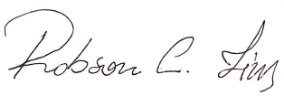 Robson C. Lins